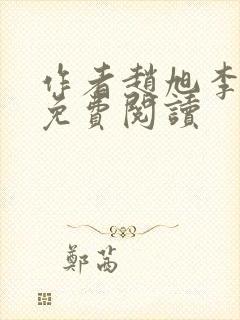 作者趙旭李
免費閱讀
鄭茜